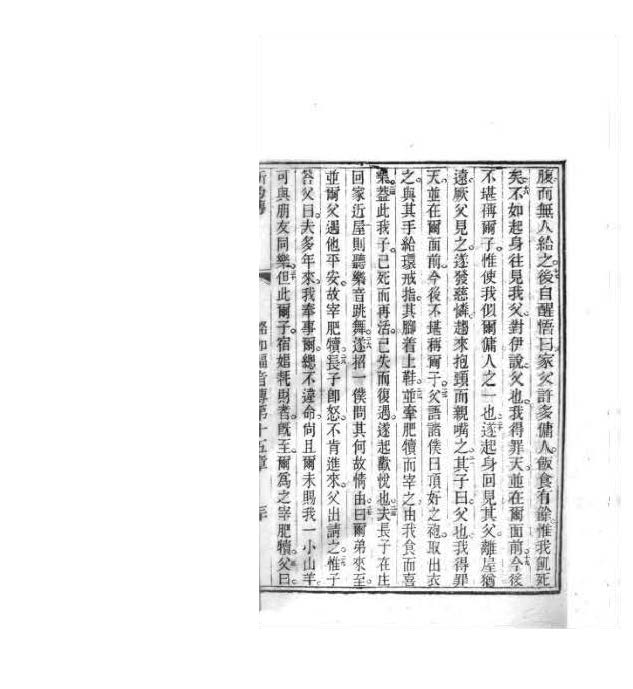 腹而無人給之後自醒悟曰家父許多傭人飯食有餘惟我飢死
矣不如起身往見我父對伊說父也我得罪天並在爾面前今後
不堪稱爾子惟使我似爾傭人之一也遂起身回見其父離屋猶
遠厥父見之遂發慈憐趨來抱頸而親嘴之其子曰父也我得罪
天並在爾面前今後不堪稱爾子父語諸僕曰頂好之袍取出衣
之與其手給環戒指其腳着上鞋並牽肥犢而宰之由我食而喜
樂蓋此我子已死而再活已失而復遇遂起歡悅也夫長子在庄
回家近屋則聽樂音跳舞遂招一僕問其何故情由曰爾弟來至
並爾父遇他平安故宰肥犢長子即怒不肯進來父出請之惟子
答父曰夫多年來我奉事爾總不違命尚且爾未賜我一小山羊
可與朋友同樂但此爾子宿娼耗財者既至爾為之宰肥犢父曰
路加福音傳第十五章